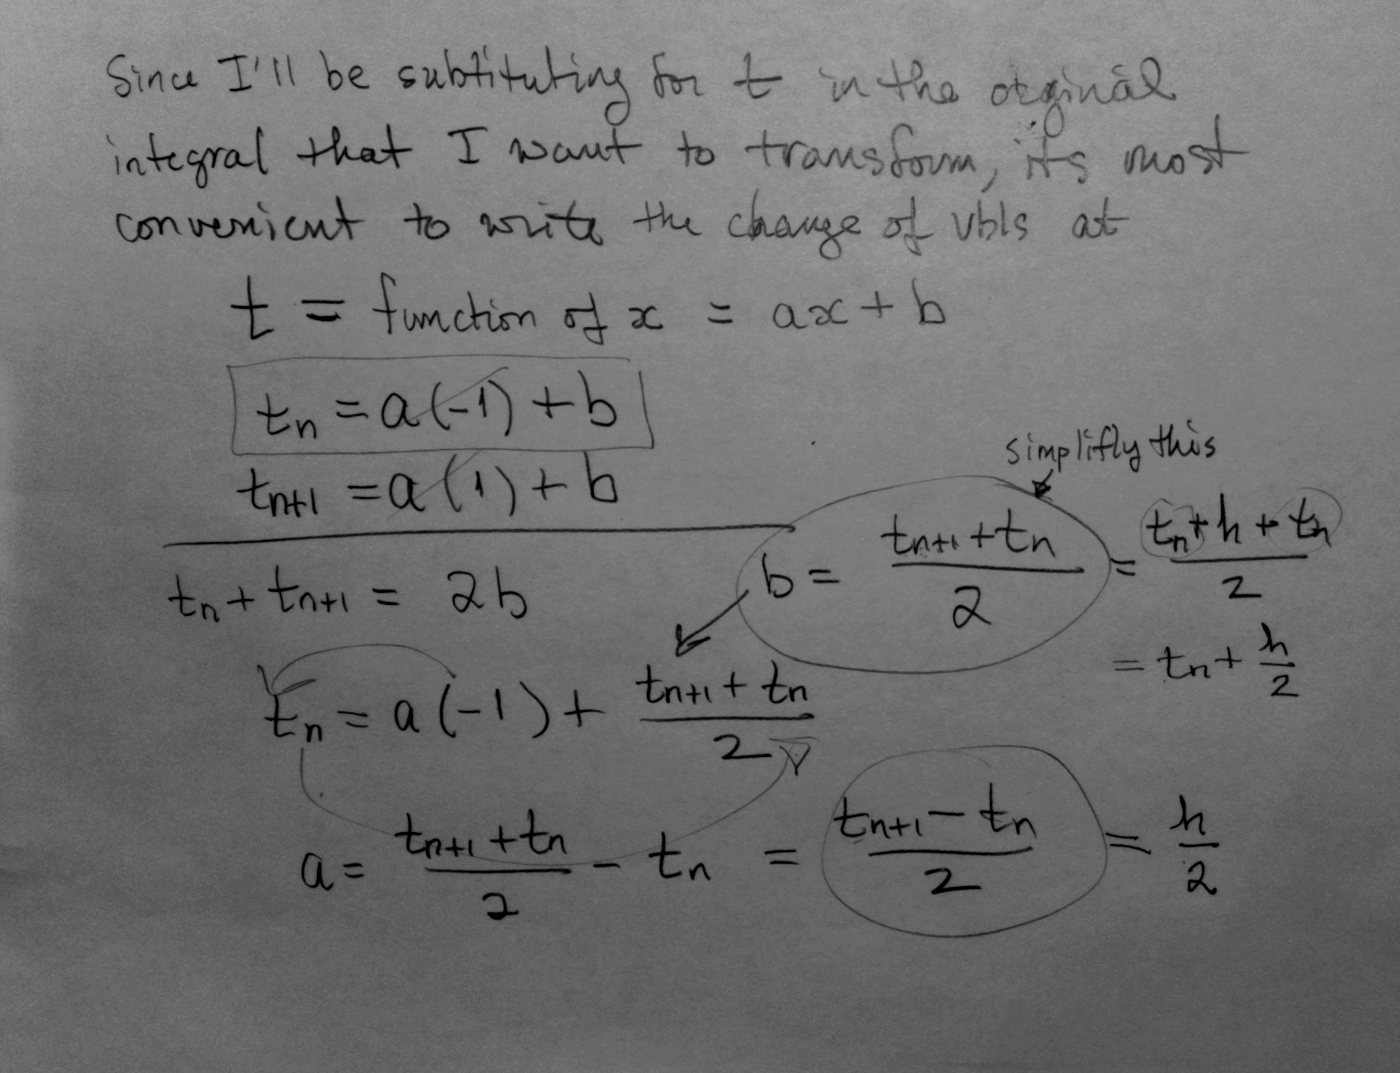 Since I'll be subtituting for t in the orginal
integral that I want to transform, it's most
convenient to write the change of vbls at
t = function of x = ax + b
tₙ = a(-1) + b
tₙ₊₁ = a(1) + b
simplifly this
tₙ + tₙ₊₁ = 2b
b = (tₙ₊₁ + tₙ)/2 = (tₙ + h + tₙ)/2
= tₙ + h/2
tₙ = a(-1) + (tₙ₊₁ + tₙ)/2
a = (tₙ₊₁ + tₙ)/2 - tₙ = (tₙ₊₁ - tₙ)/2 = h/2